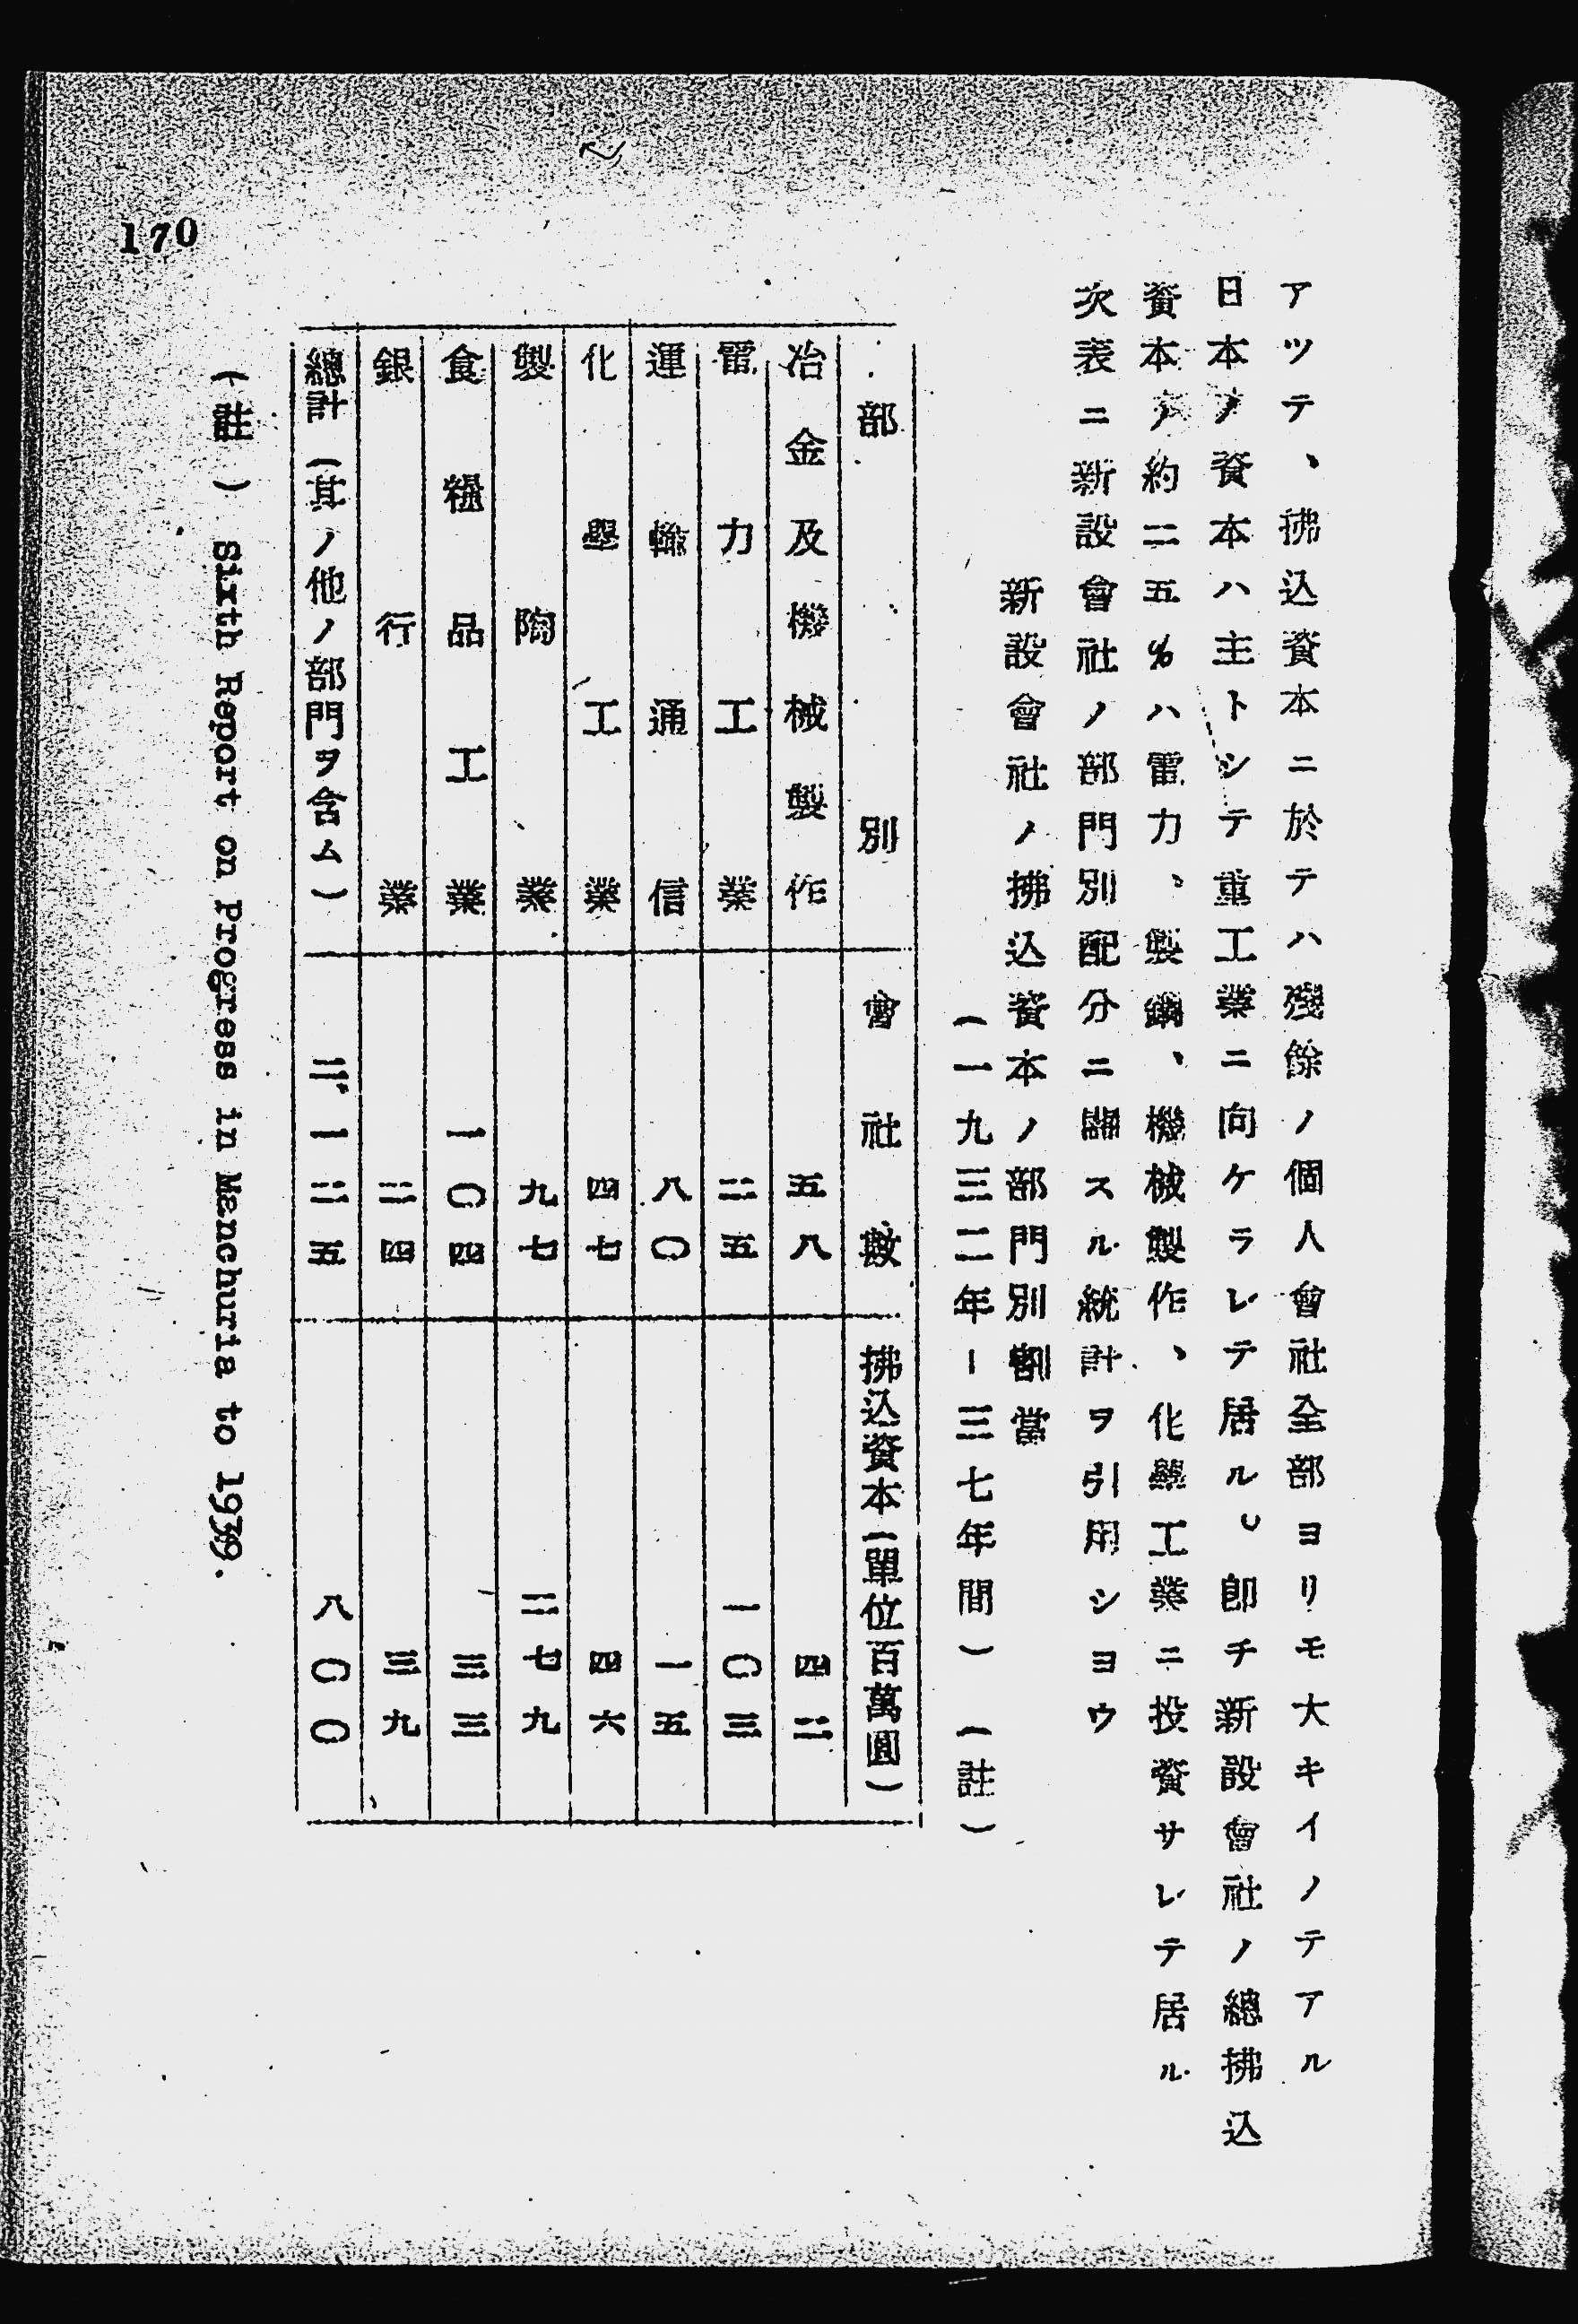 アツテ、拂込資本ニ於テハ殘餘ノ個人會社全部ヨリモ大キイノテアル
日本ノ資本ハ主トシテ重工業ニ向ケラレテ居ル。卽チ新設會社ノ總拂込
資本ノ約二五%ハ電力、製鋼、機械製作、化學工業ニ投資サレテ居ル
次表ニ新設會社ノ部門別配分ニ關スル統計ヲ引用シヨウ
新設會社ノ拂込資本ノ部門別割當
(一九三二年ー三七年間) (註)
部別 會社數 拂込資本(單位百萬圓)
冶金及機械製作 五八 四二
電力工業 二五 一〇三
運輸通信 八〇 一五
化學工業 四七 四六
製陶業 九七 二七九
食糧品工業 一〇四 三三
銀行業 二四 三九
總計(其ノ他ノ部門ヲ含ム) 二、一二五 八〇〇
(註) Sixth Report on Progress in Manchuria to 1939.
170